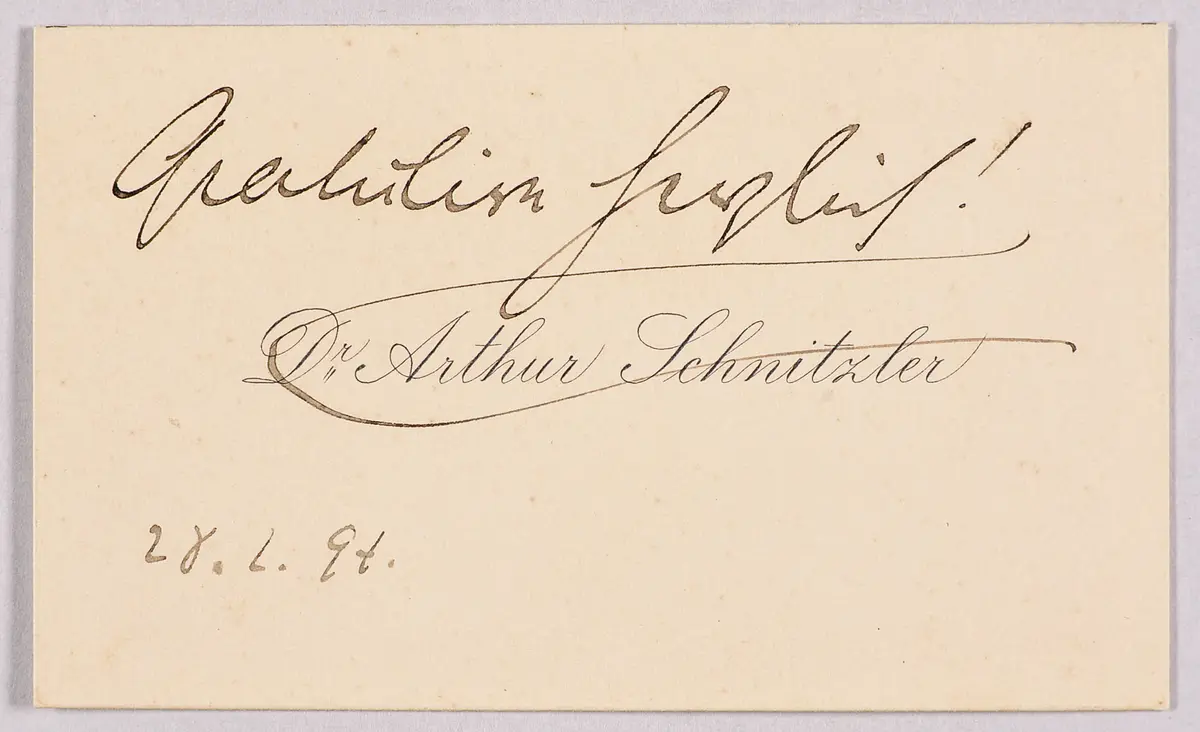 Gratuliere herzlich!
Dr. Arthur Schnitzler
28. 2. 94.